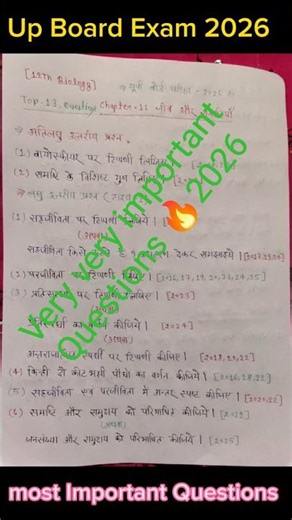 Up Board Exam 2026
[12th Biology] → यूपी बोर्ड परीक्षा - 2026
Top-13, Question Chapter-11 जीव और
→ अतिलघु उत्तरीय प्रश्न -
(1) पर टिप्पणी लिखिए
(2) समष्टि के विशिष्ट गुण
→ लघु उत्तरीय प्रश्न
(1) सहजीविता पर टिप्पणी लिखिए
(अथवा)
सहजीविता किसे देकर समझाइये
(2) परजीविता पर टिप्पणी लिखिए [2016,17,19,20,22,24,25]
(3) पर लिखिए [2023]
(अथवा)
का कीजिये। [2024]
(अथवा)
पर टिप्पणी कीजिए। [2018,20,22]
(4) किन्हीं दो कीट भक्षी पौधों का वर्णन कीजिये। [2016,18,22]
(5) सहजीविता एवं परजीविता में अन्तर स्पष्ट कीजिए। [2020,22]
(6) समष्टि और समुदाय को परिभाषित कीजिये। [2022]
(अथवा)
जनसंख्या और समुदाय को परिभाषित कीजिये। [2025]
Very very important
Questions 🔥 2026
most Important Questions